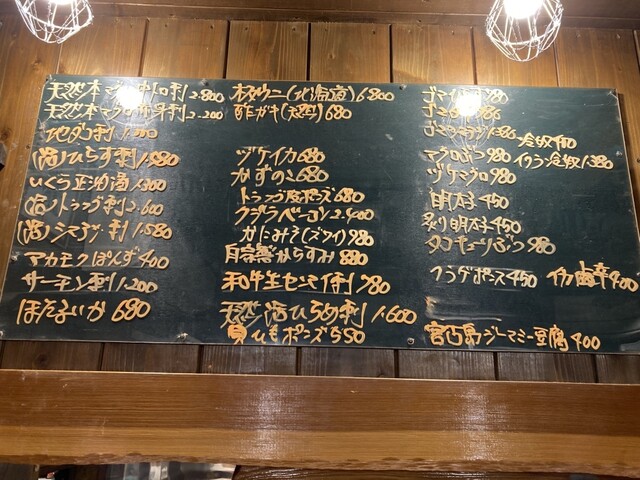 天然本マグロ中トロ刺 2.800
天然本マグロ赤身刺 2.200
地ダコ刺
(活)ひらす刺 1.580
いくら正油漬 1.300
(活)トラフグ刺 2.600
(活)シマアジ刺 1.580
アカモクぽんず 400
サーモン刺 1.200
ほたるいか 680
ウニ(北海道) 6.800
酢ガキ(天然) 680
ヅケイカ 680
かずのこ 680
トラフグ皮ポンズ 680
クジラベーコン 2.400
カニみそ(ズワイ) 980
自家製からすみ 880
和牛生センマイ刺 780
天然活ひらめ刺 1.600
貝ひもポンズ 550
ゴマ
ゴマ
ゴマ
冷奴 400
マグロぶつ 980 イクラ冷奴 1.380
ヅケマグロ 980
明太子 450
炙り明太子 450
タコキューりぶつ 980
クラゲポンス 450 イカ塩辛 400
宮古島ジーマミー豆腐 400